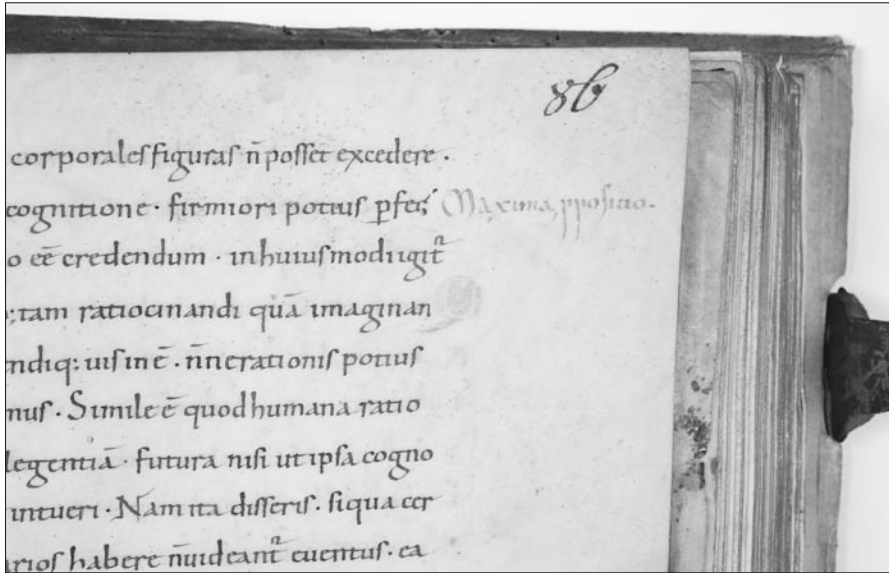 86
corporales figuras n̄ posset excedere .
cognitione · firmiori potius ꝑfec̄ Maxima ꝓpositio.
o eē credendum · in huiusmodi igit᷑
;tam ratiocinandi quā imaginan
ndiq: uis in ē · n̄ne rationis potius
mus · Simile ē quod humana ratio
legentiā · futura nisi ut ipsa cogno
intueri · Nam ita disseris · siqua cer
arios habere n̄ uideant᷑ euentus · ea